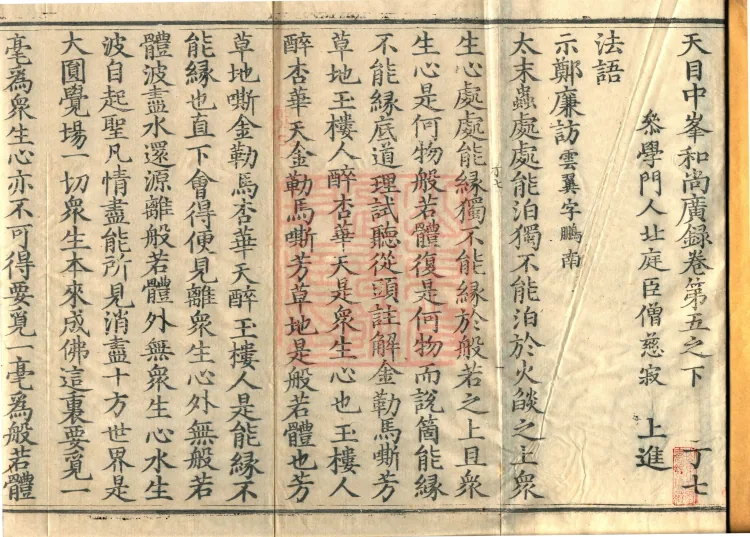 天目中峯和尚廣録卷第五之下 丁七
叅學門人北庭臣僧慈寂 上進
法語
示鄭廉訪雲翼字鵬南
太末蟲處處能泊獨不能泊於火燄之上衆
生心處處能緣獨不能緣於般若之上且衆
丁七
生心是何物般若體復是何物而說箇能緣
不能緣底道理試聽從頭註解金勒馬嘶芳
草地玉樓人醉杏華天是衆生心也玉樓人
醉杏華天金勒馬嘶芳草地是般若體也芳
草地嘶金勒馬杏華天醉玉樓人是能緣不
能緣也直下會得便見離衆生心外無般若
體波盡水還源離般若體外無衆生心水生
波自起聖凡情盡能所見消盡十方世界是
大圓覺場一切衆生本來成佛這裏要覓一
毫為衆生心亦不可得要覓一毫為般若體